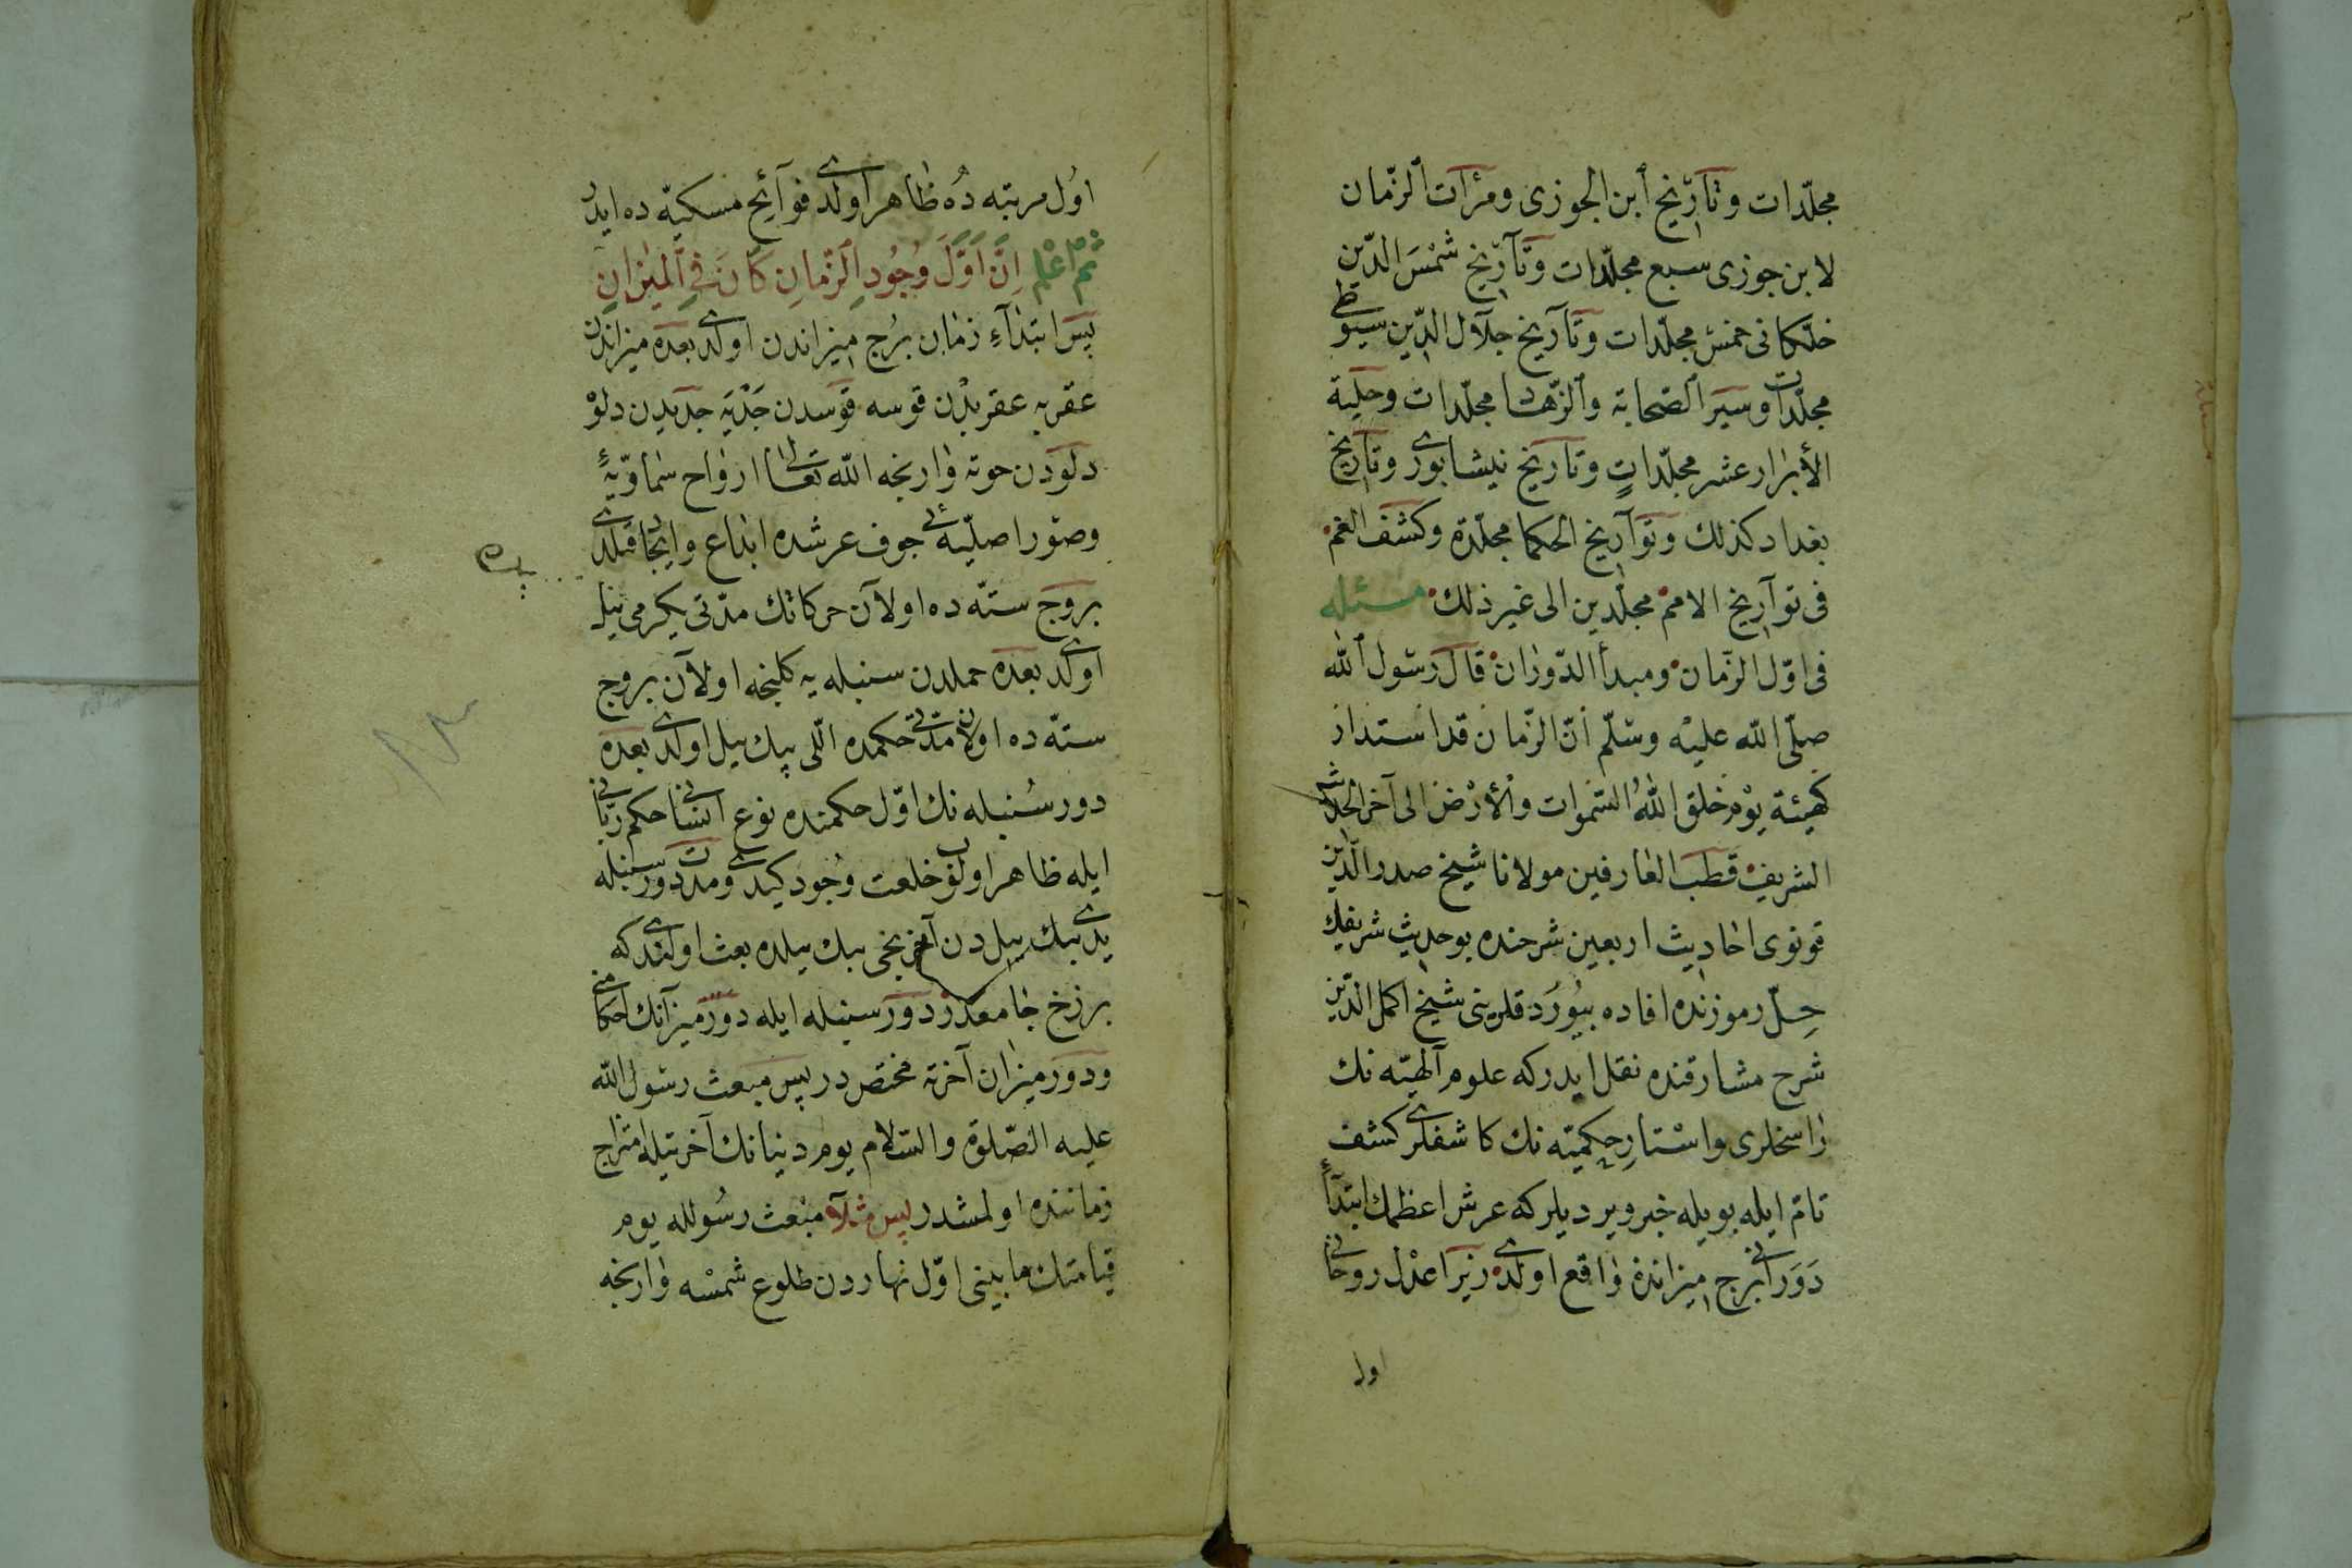 مجلّدات وتآريخ ابن الجوزى ومرآت الزّمان
لابن جوزى سبع مجلّدات وتآريخ شمس الدّين
خلّكانى خمس مجلّدات وتآريخ جلال الدّين سيوطى
مجلّدات وسير الصّحابة والزّهاد مجلّدات وحلية
الأبرار عشر مجلّداتٍ وتاريخ نيشابورى وتاريخ
بغداد كذلك وتوآريخ الحكما مجلّدة وكشف الغمم
فى توآريخ الامم مجلّدين الى غير ذلك مسئله
فى اوّل الزّمان ومبدأ الدّوران قال رسول الله
صلّى الله عليه وسلّم انّ الزّمان قد استدار
كهيئة يوم خلق اللهُ السّموات والأرض الى آخر الحديث
الشريف قطب العارفين مولانا شيخ صدر الدّين
قونوى احاديث اربعين شرحنده بو حديث شريفك
حِلّ رموزنده افاده بيُورد قلرينى شيخ اكمل الدّين
شرح مشارقنده نقل ايدر كه علوم آلهيّه نك
راسخلرى واستارِ حكميّه نك كاشفلرى كشف
تامّ ايله بويله خبر ويرديلر كه عرش اعظمك ابتدآءِ
دَوَرانى برج ميزانده واقع اولدى زيرا عدل روحانى
اول
اوُل مرتبه دُه ظاهر اولدى فوآئح مسكيّه ده ايدر
ثمّ اعْلم اِنَّ اَوَّلَ وُجُودِ الزَّمانِ كَانَ فِى الْميٖزانِ
پس ابتدآءِ زمان برُج ميزاندن اولدى بعده ميزاندن
عقربه عقربدن قوسه قوسدن جَدْيَه جديدن دلوْ
دلودن حوته وارنجه الله تعالى ارواح سماويّهٔ
وصور اصليّه ئى جوف عرشده ابداع وايجاد قيلدى
بروج ستّه ده اولآن حركاتك مدّتى يكرمى بيل
اولدى بعده حملدن سنبله يه كلنجه اولآن بروج
ستّه ده اولان مدّتى حكمده اللّى بيك ييل اولدى بعده
دور سُنبله نك اوّل حكمنده نوع انسانى حكم ربّانى
ايله ظاهر اولوب خلعت وجُود كيدى ومدت دور سنبله
يدى بيك ييل دن آخر يخى بيك ييلده بعث اولندى كه
برزخ جامعدر دور سنبله ايله دور ميزآنك احكامنى
ودور ميزان آخرته مختصّ در پس مبعث رسول الله
عليه الصّلوة والسّلام يوم دنيانك آخرتيله امتزاج
زماننده اولمشدر پس مثلآ مبْعث رسُولله يوم
قيامتك مابينى اوّل نهاردن طلوع شمسه وارنجه